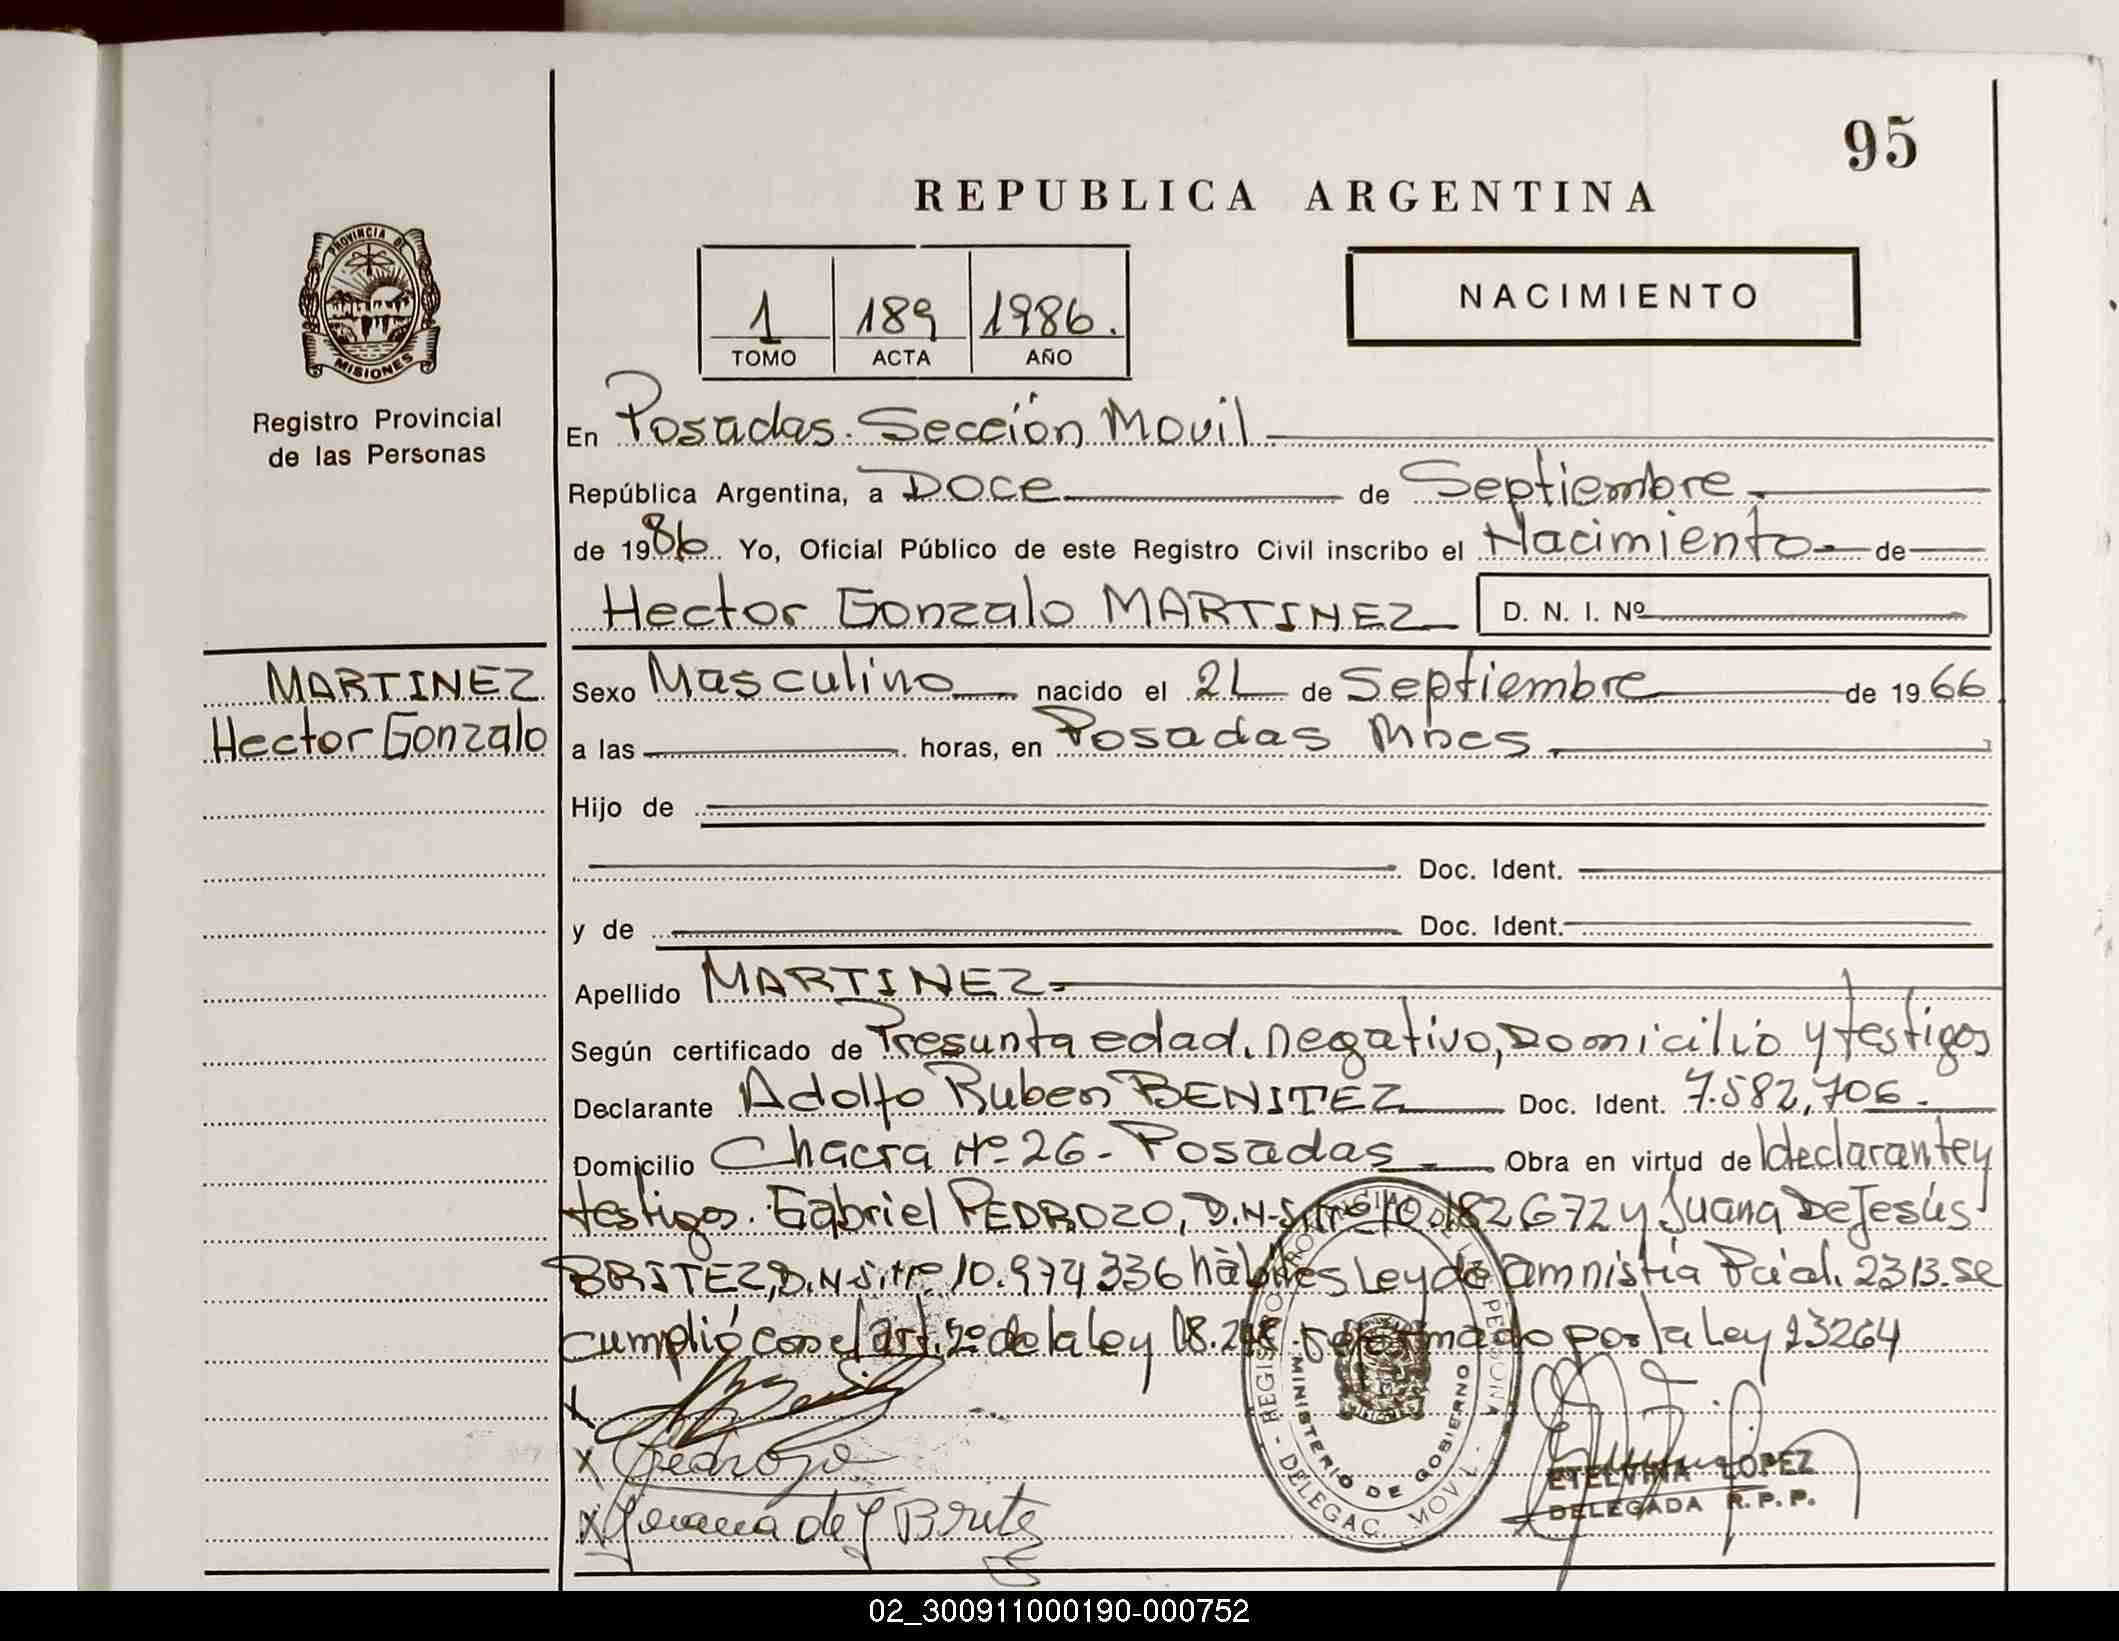 95
REPUBLICA ARGENTINA
PROVINCIA DE
MISIONES
Registro Provincial
de las Personas
1 189 1986.
TOMO ACTA AÑO
NACIMIENTO
En Posadas. Sección Movil
República Argentina, a Doce de Septiembre.
de 1986. Yo, Oficial Público de este Registro Civil inscribo el Nacimiento de
Hector Gonzalo MARTINEZ D. N. I. Nº
MARTINEZ
Hector Gonzalo
Sexo Masculino nacido el 21 de Septiembre de 1966
a las horas, en Posadas Mnes.
Hijo de
Doc. Ident.
y de Doc. Ident.
Apellido MARTINEZ.
Según certificado de Presunta edad, negativo, Domicilio y testigos
Declarante Adolfo Ruben BENITEZ Doc. Ident. 7.582,706.
Domicilio Chacra Nº 26 - Posadas Obra en virtud de declarante y
testigos. Gabriel PEDROZO, D.N.I. Nº 10.182672 y Juana De Jesús
BRITEZ, D.N.I. Nº 10.974336 hàbiles Ley de amnistía Pcial. 2313. se
cumplió con el art. 2º de la ley 18.248 reformado por la Ley 23264
Pedrozo
Juana de J Britez
REGISTRO PROVINCIAL DE LAS PERSONAS
MINISTERIO DE GOBIERNO
- DELEGAC. MOVIL -
ETELVINA LOPEZ
DELEGADA R. P. P.
02_300911000190-000752